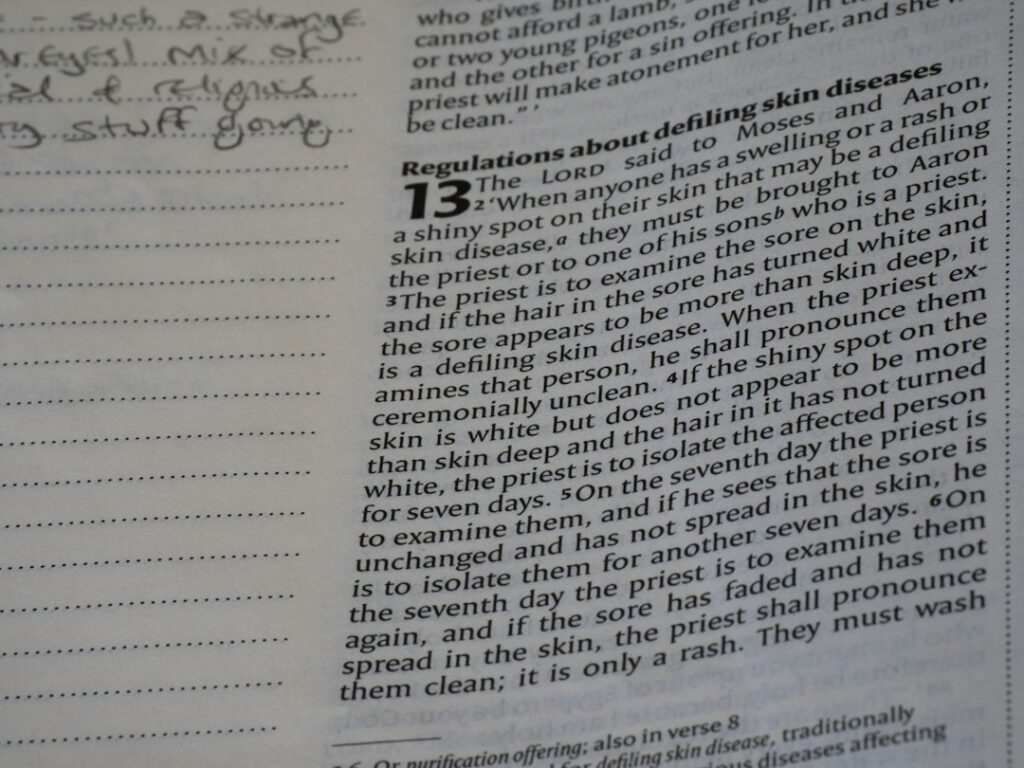 - such a strange
eyes! mix of
& religious
stuff going
who gives
cannot afford a lamb,
or two young pigeons, one
and the other for a sin offering. In
priest will make atonement for her, and she
be clean.” ’
Regulations about defiling skin diseases
13 The LORD said to Moses and Aaron,
2 ‘When anyone has a swelling or a rash or
a shiny spot on their skin that may be a defiling
skin disease,a they must be brought to Aaron
the priest or to one of his sonsb who is a priest.
3 The priest is to examine the sore on the skin,
and if the hair in the sore has turned white and
the sore appears to be more than skin deep, it
is a defiling skin disease. When the priest ex-
amines that person, he shall pronounce them
ceremonially unclean. 4 If the shiny spot on the
skin is white but does not appear to be more
than skin deep and the hair in it has not turned
white, the priest is to isolate the affected person
for seven days. 5 On the seventh day the priest is
to examine them, and if he sees that the sore is
unchanged and has not spread in the skin, he
is to isolate them for another seven days. 6 On
the seventh day the priest is to examine them
again, and if the sore has faded and has not
spread in the skin, the priest shall pronounce
them clean; it is only a rash. They must wash
Or purification offering; also in verse 8
for defiling skin disease, traditionally
diseases affecting